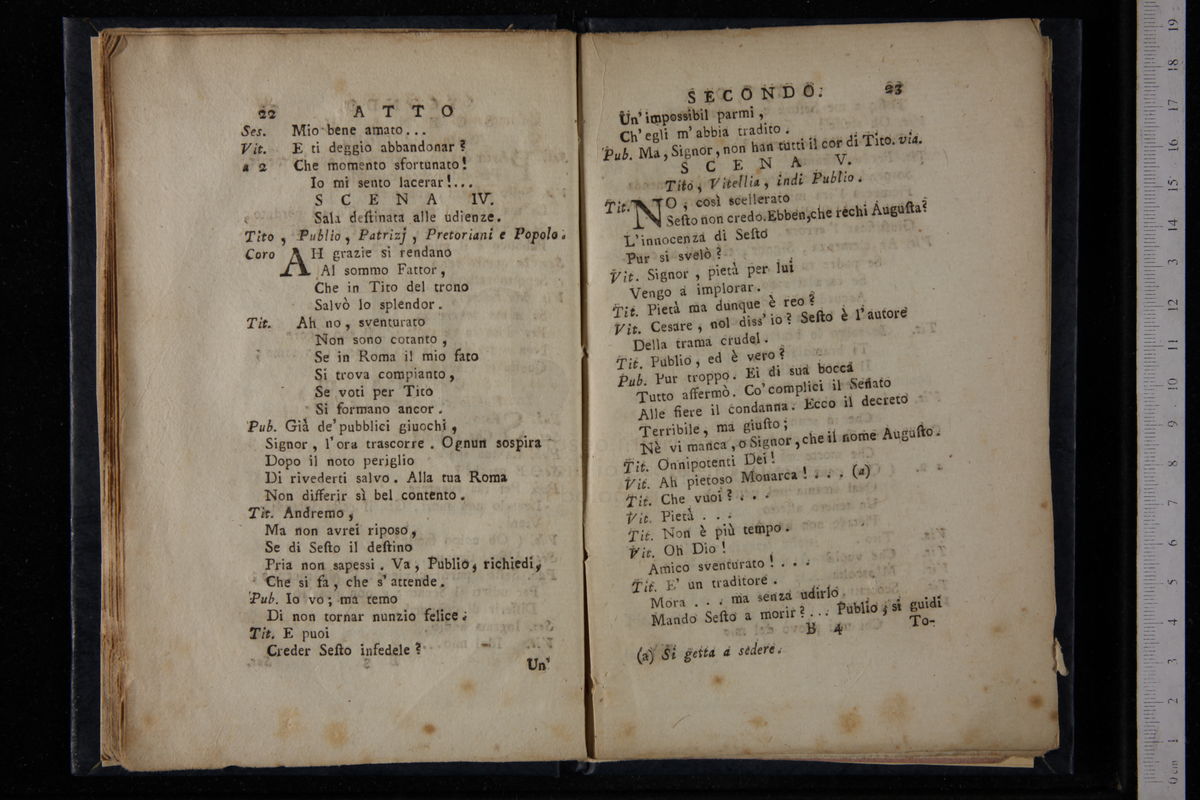 22 ATTO
Ses. Mio bene amato...
Vit. E ti deggio abbandonar?
a 2 Che momento sfortunato!
Io mi sento lacerar!...
SCENA IV.
Sala deſtinata alle udienze.
Tito, Publio, Patrizj, Pretoriani e Popolo.
Coro AH grazie si rendano
Al sommo Fattor,
Che in Tito del trono
Salvò lo splendor.
Tit. Ah no, sventurato
Non sono cotanto,
Se in Roma il mio fato
Si trova compianto,
Se voti per Tito
Si formano ancor.
Pub. Già de' pubblici giuochi,
Signor, l'ora trascorre. Ognun sospira
Dopo il noto periglio
Di rivederti salvo. Alla tua Roma
Non differir sì bel contento.
Tit. Andremo,
Ma non avrei riposo,
Se di Seſto il deſtino
Pria non sapessi. Va, Publio, richiedi,
Che si fa, che s'attende.
Pub. Io vo; ma temo
Di non tornar nunzio felice.
Tit. E puoi
Creder Seſto infedele?
Un'
SECONDO. 23
Un' impossibil parmi,
Ch' egli m'abbia tradito.
Pub. Ma, Signor, non han tutti il cor di Tito. via.
SCENA V.
Tito, Vitellia, indi Publio.
Tit. NO, così scellerato
Seſto non credo. Ebben, che rechi Auguſta?
L'innocenza di Seſto
Pur si svelò?
Vit. Signor, pietà per lui
Vengo a implorar.
Tit. Pietà ma dunque è reo?
Vit. Cesare, nol diss' io? Seſto è l'autore
Della trama crudel.
Tit. Publio, ed è vero?
Pub. Pur troppo. Ei di sua bocca
Tutto affermò. Co' complici il Senato
Alle fiere il condanna. Ecco il decreto
Terribile, ma giuſto;
Nè vi manca, o Signor, che il nome Auguſto.
Tit. Onnipotenti Dei!
Vit. Ah pietoso Monarca!... (a)
Tit. Che vuoi?...
Vit. Pietà...
Tit. Non è più tempo.
Vit. Oh Dio!
Amico sventurato!...
Tit. E' un traditore.
Mora... ma senza udirlo
Mando Seſto a morir?... Publio, si guidi
B 4 To-
(a) Si getta a sedere.